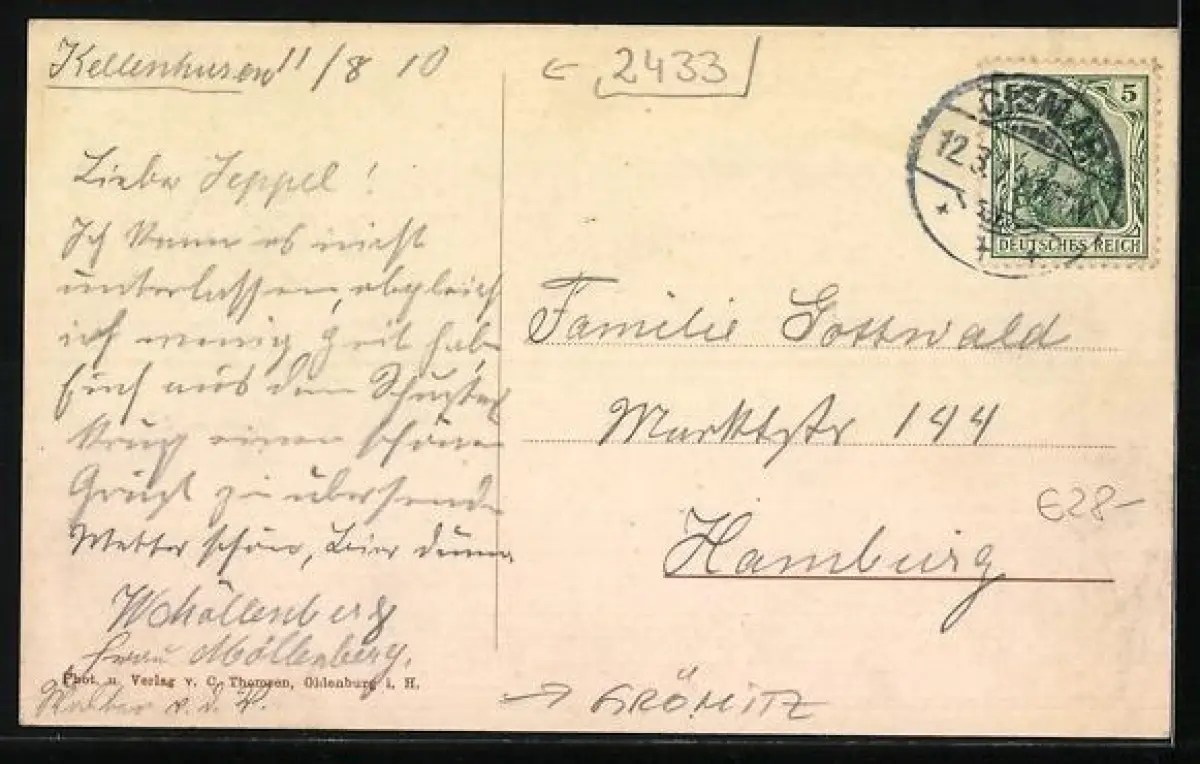 Kellenhusen 11/8 10
2433
CISMAR
12.3
5
DEUTSCHES REICH
Lieber Seppel!
Ich kann es nicht
unterlassen, obgleich
ich wenig Zeit habe
Euch aus dem
Krug einen schönen
Gruß zu übersenden
Wetter schön, Bier dünn
W Möllenberg
Frau Möllenberg.
Phot. u. Verlag v. C. Thomsen, Oldenburg i. H.
v. d. V.
Familie Gottwald
Marktstr 144
Hamburg
€28-
→ GRÖMITZ